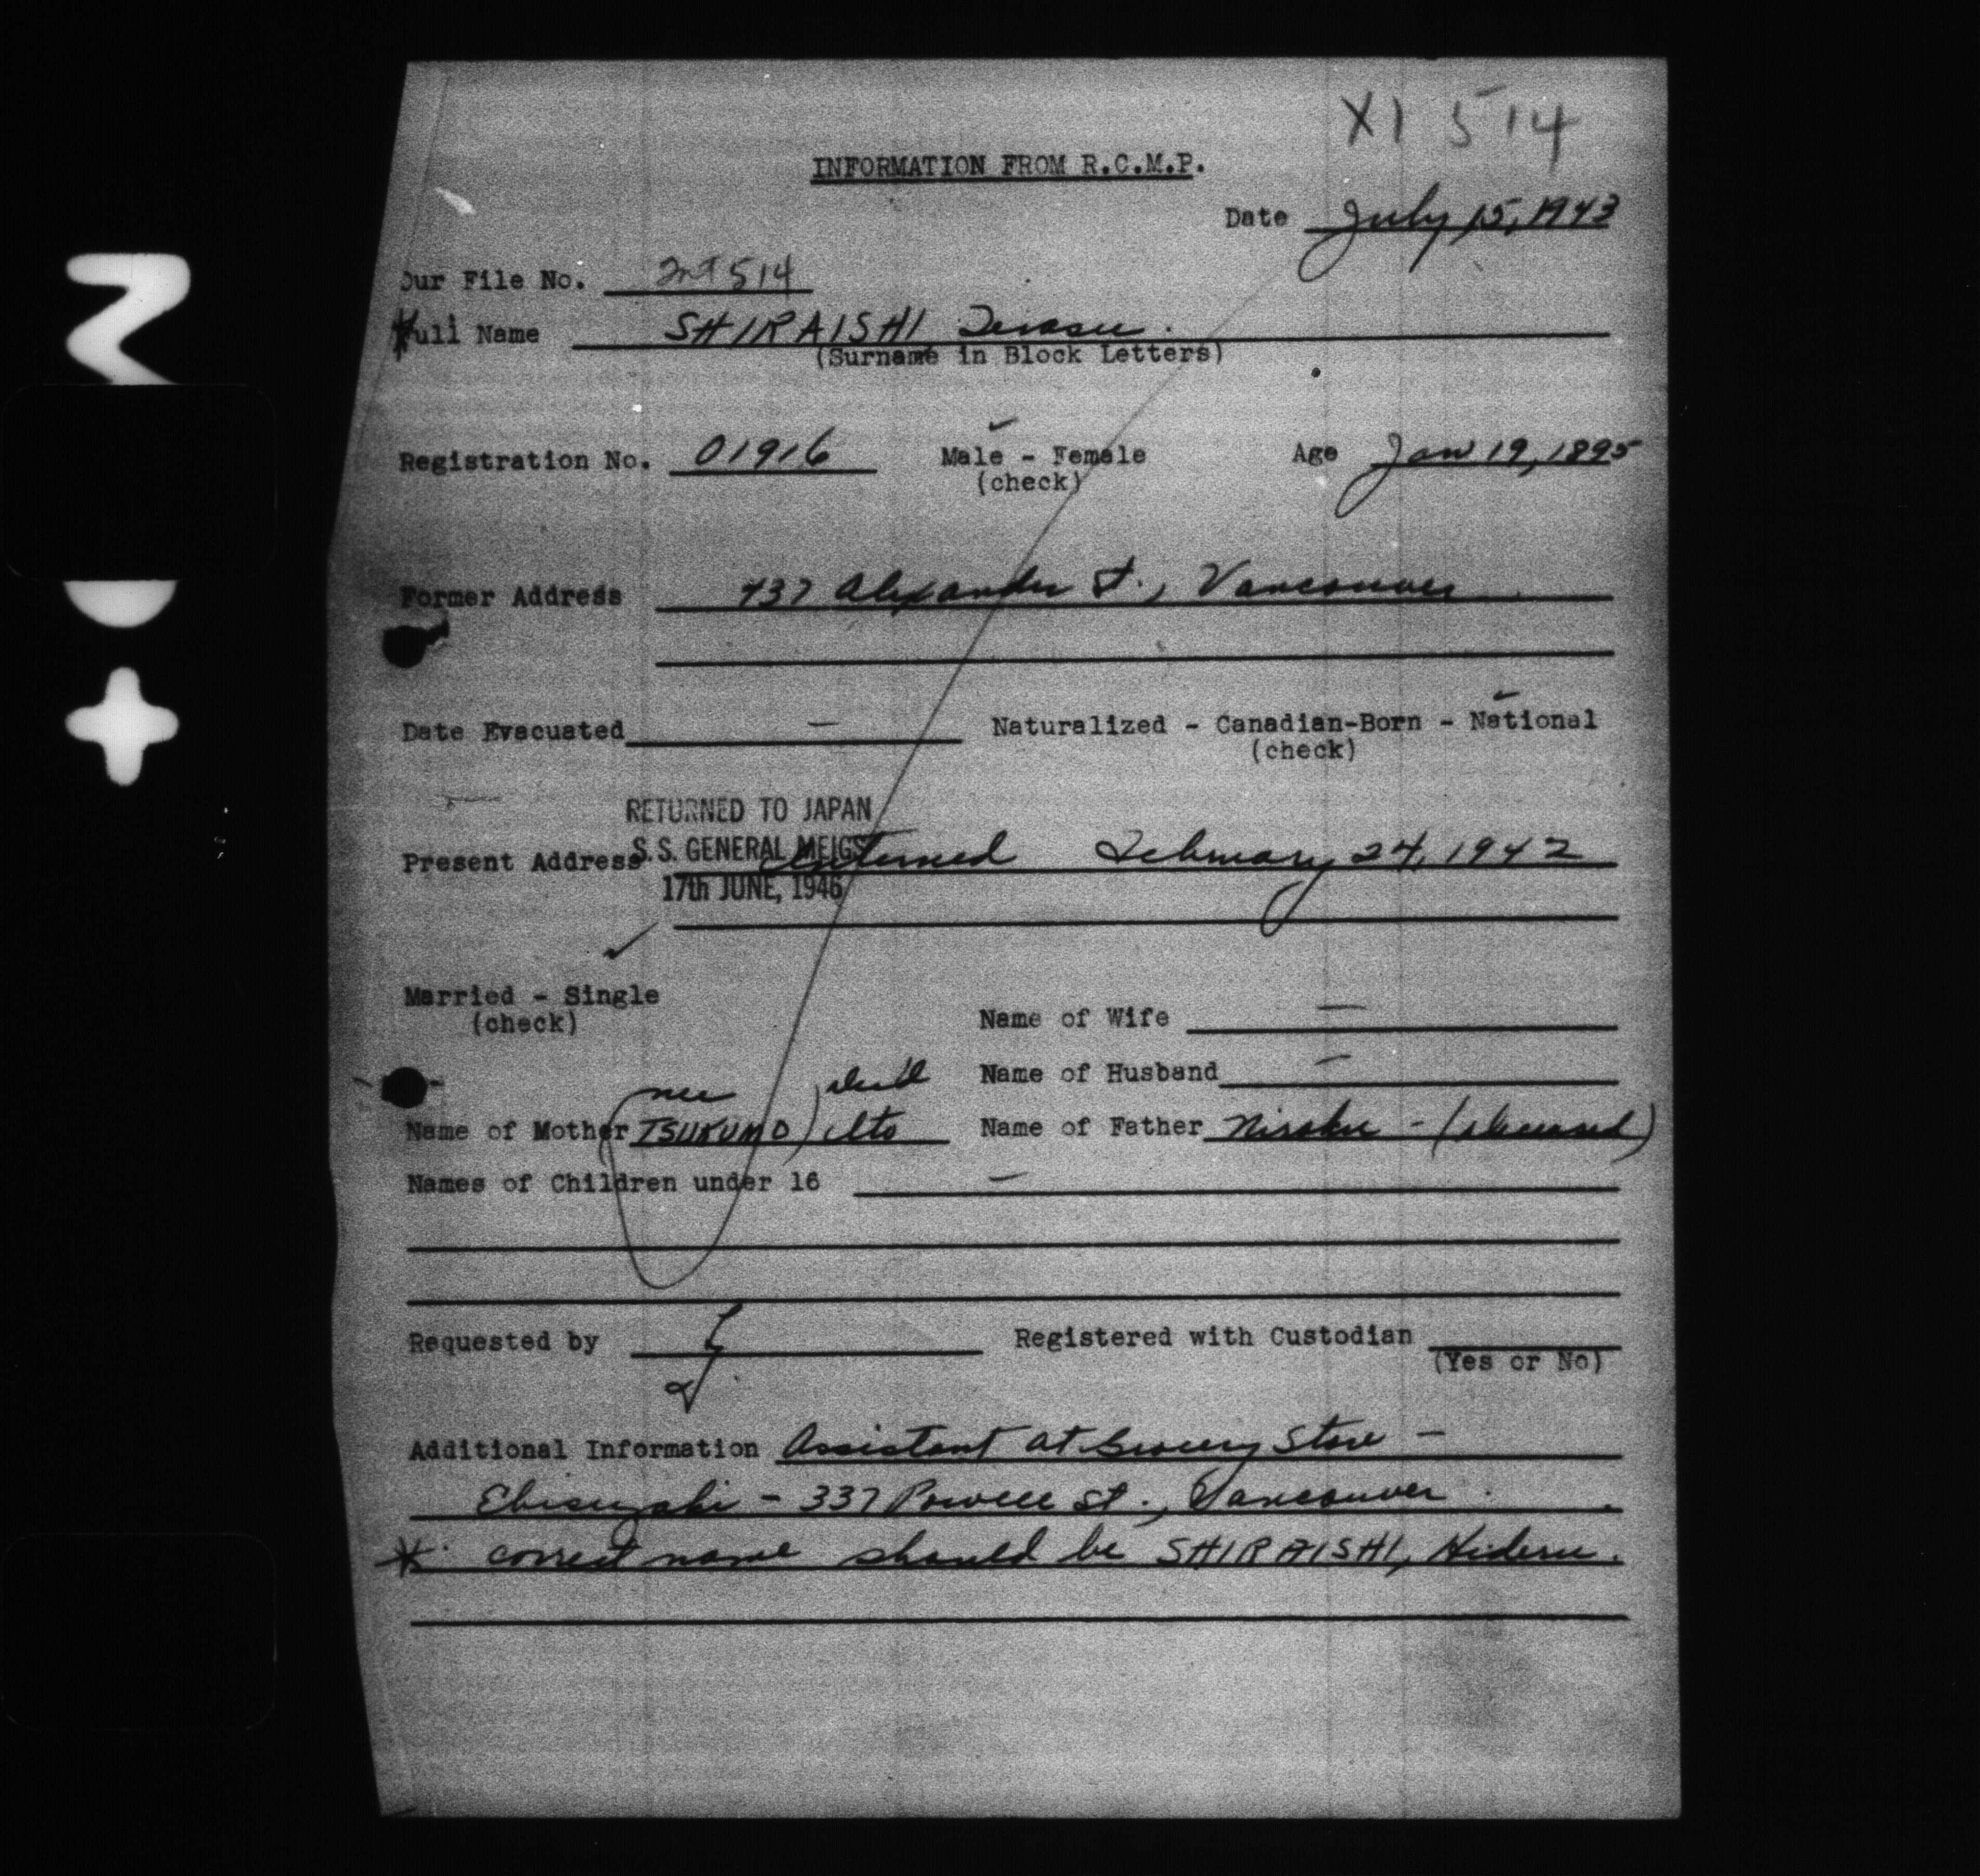 XI 514
INFORMATION FROM R.C.M.P.
Date July 15, 1943
Our File No. Int 514
Full Name SHIRAISHI Terasu.
(Surname in Block Letters)
Registration No. 01916 Male - Female Age Jan 19, 1895
(check)
Former Address 437 Alexander St., Vancouver
Date Evacuated — Naturalized - Canadian-Born - National
(check)
RETURNED TO JAPAN
S.S. GENERAL MEIGS
Present Address interned February 24, 1942
17th JUNE, 1946
Married - Single
(check)
Name of Wife —
Name of Husband —
Name of Mother (nee TSUKUMO) Ito Name of Father - (deceased)
Names of Children under 16 —
Requested by Registered with Custodian
(Yes or No)
Additional Information Assistant at Grocery Store -
Ebisuzaki - 337 Powell St., Vancouver.
* correct name should be SHIRAISHI, Hideru.